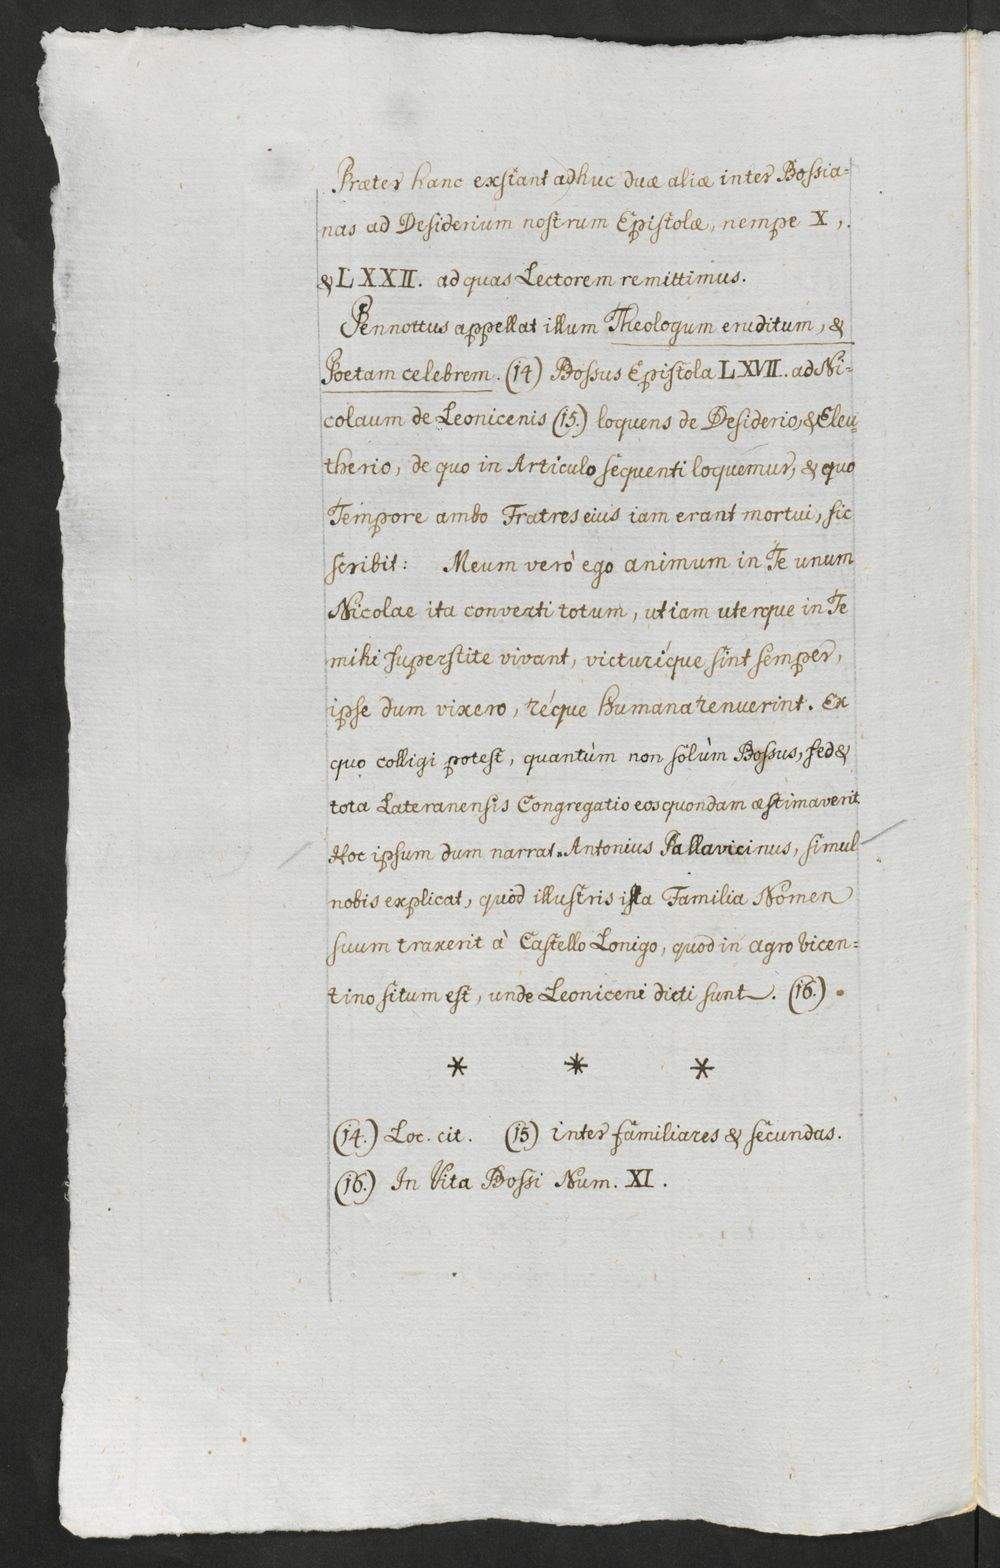 Præter hanc exstant adhuc duæ aliæ inter Bossia=
nas ad Desiderium nostrum Epistolæ, nempe X,.
& LXXII. ad quas Lectorem remittimus.
Pennottus appellat illum Theologum eruditum, &
Poetam celebrem. (14) Bossus Epistola LXVII. ad Ni=
colaum de Leonicenis (15.) loquens de Desiderio, & Eleu=
therio, de quo in Articulo sequenti loquemur, & quo
Tempore ambo Fratres eius iam erant mortui, sic
scribit: Meum verò ego animum in Te unum
Nicolae ita converti totum, ut iam uterque in Te
mihi superstite vivant, victurique sint semper,
ipse dum vixero, réque humana tenuerint. Ex
quo colligi potest, quantùm non solùm Bossus, sed &
tota Lateranensis Congregatio eos quondam æstimaverit
Hoc ipsum dum narrat Antonius Pallavicinus, simul
nobis explicat, quòd illustris ista Familia Nomen
suum traxerit à Castello Lonigo, quod in agro vicen=
tino situm est, unde Leoniceni dicti sunt. (16.)
* * *
(14.) Loc. cit. (15) inter familiares & secundas.
(16.) In Vita Bossi Num. XI.